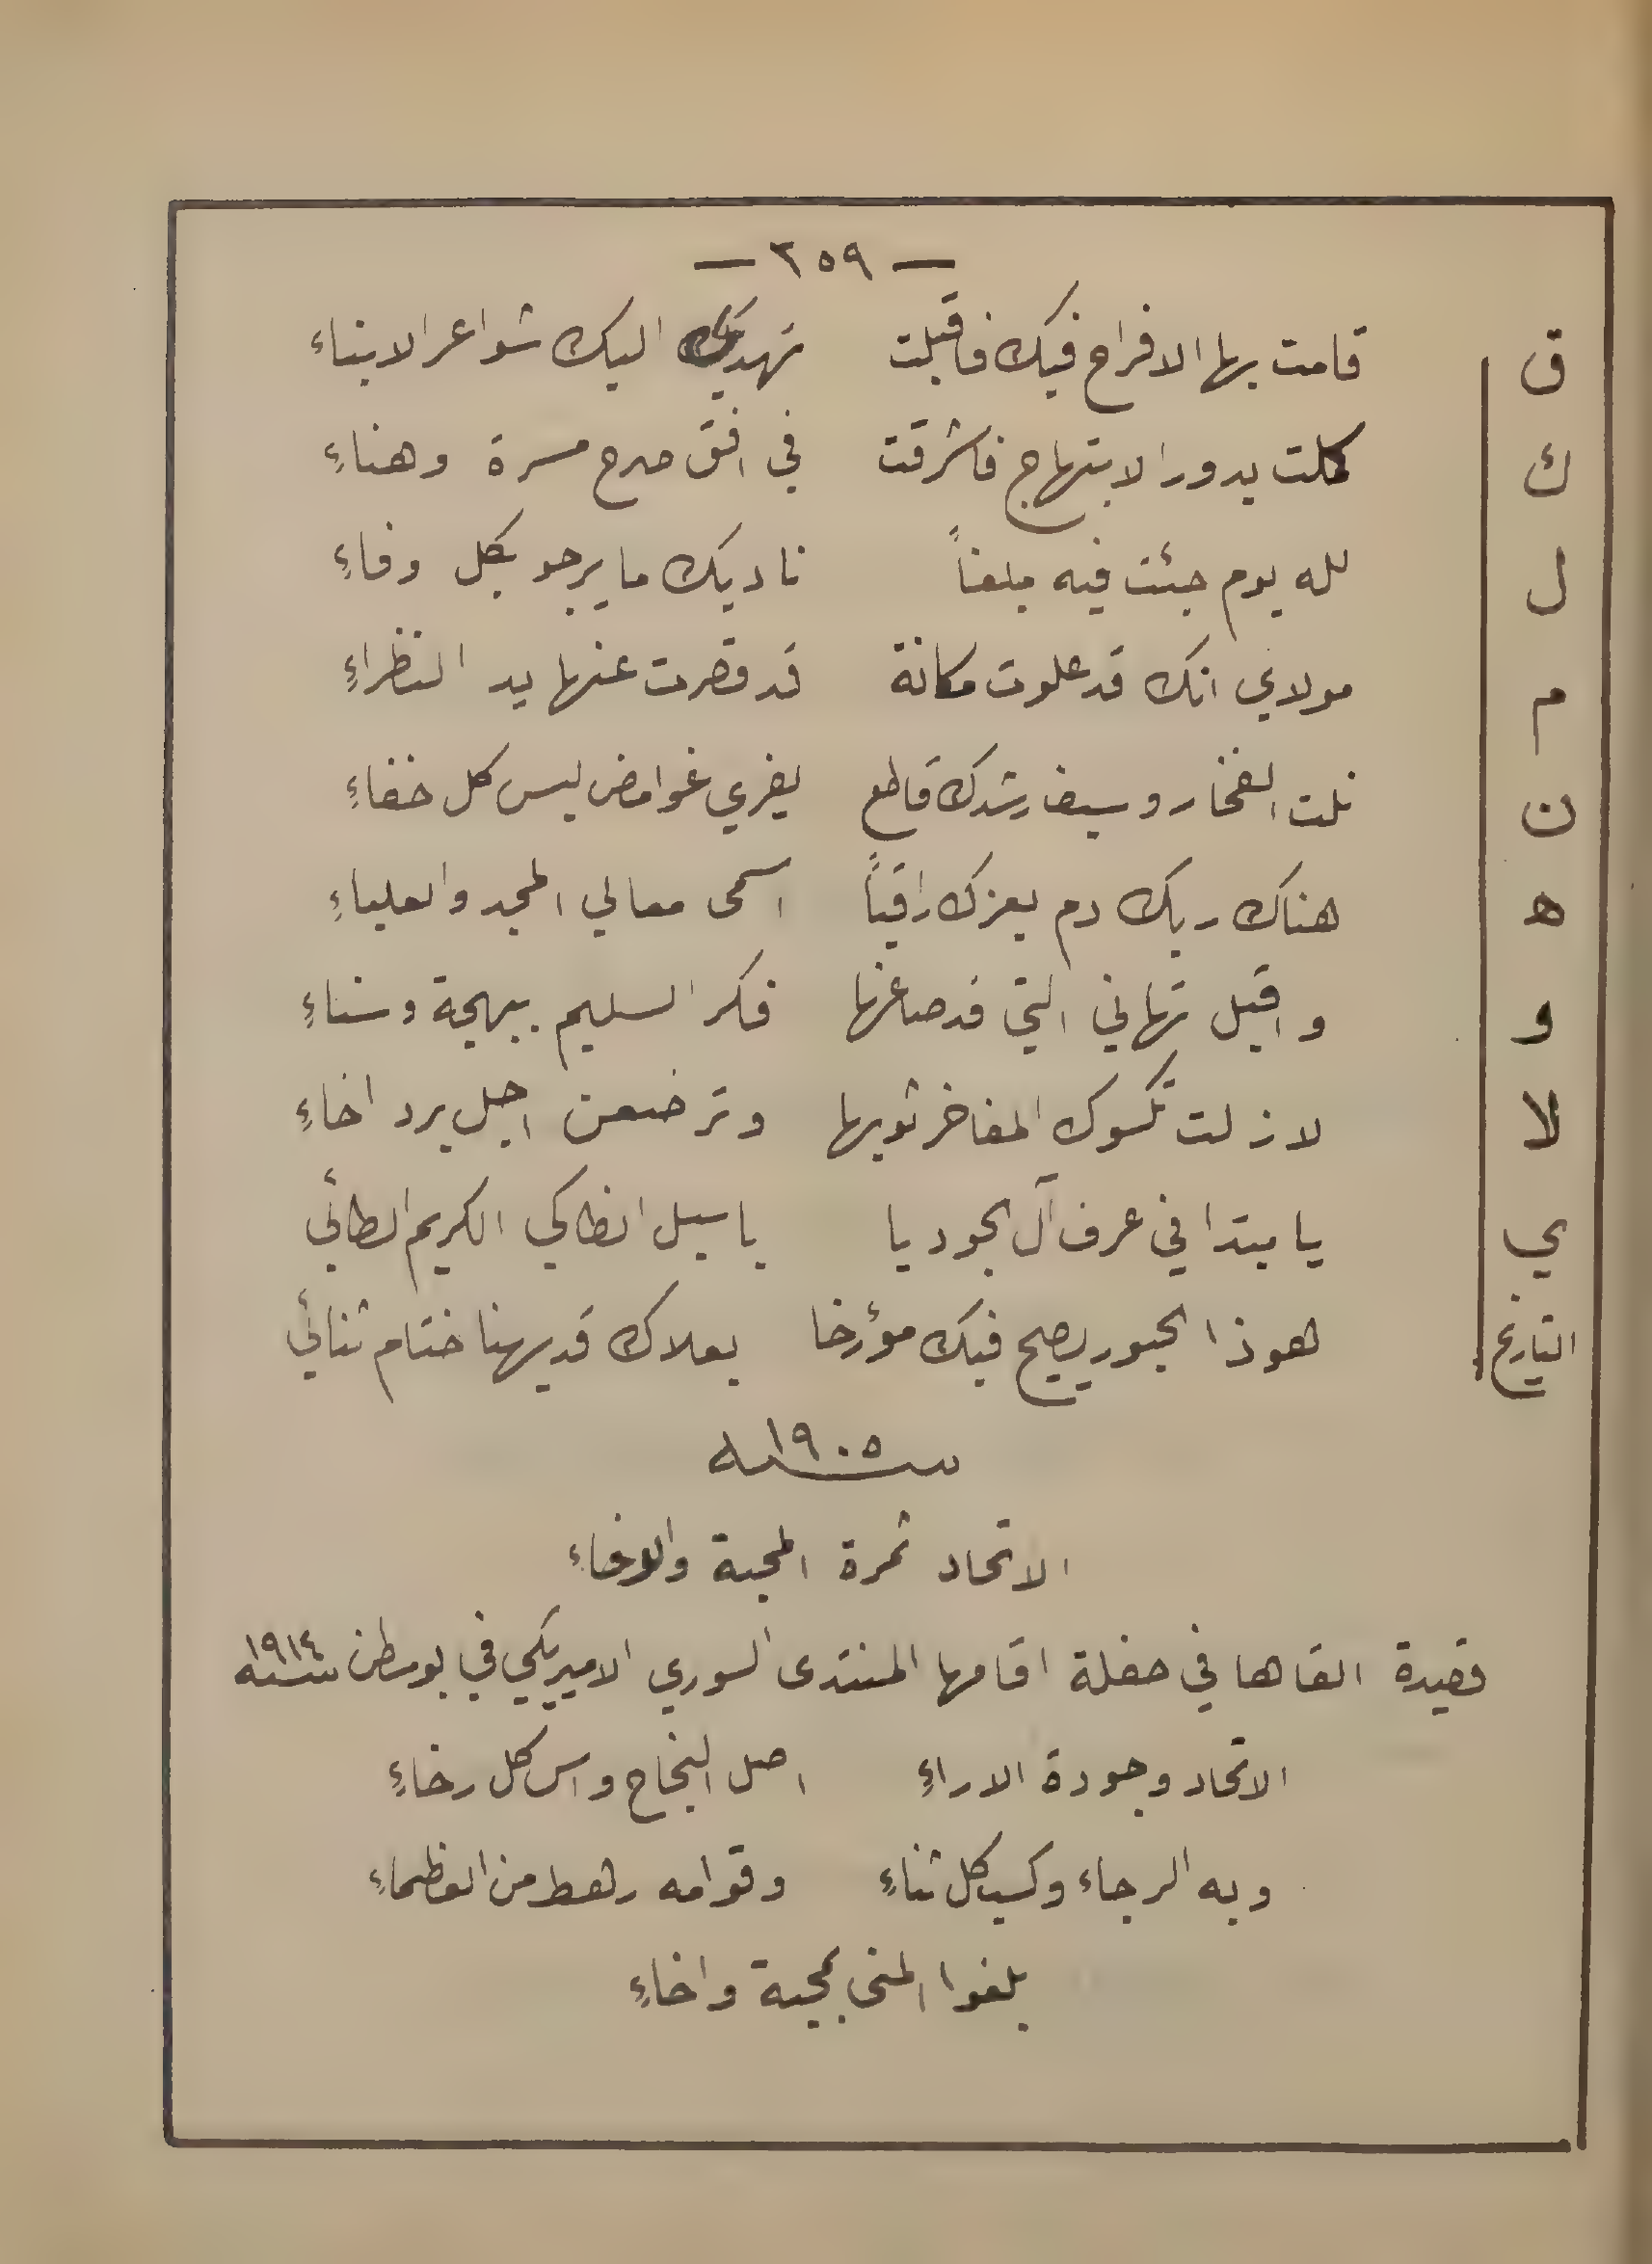 — ٢٥٩ —
ق قامت بها الافراح فيك فاقبلت تهديك اليك شواعر الابناء
ك كملت بدور الابتهاج فاشرقت في افق صرح مسرة وهناءِ
ل لله يوم جئت فيه مبلغاً ناديك ما يرجو بكل وفاءِ
م مولاي انك قد علوت مكانة قد قصرت عنها يد النظراءِ
ن نلت الفخار وسيف رشدك قاطع يفري غوامض ليس كل خفاءِ
ه هناك ربك دم بعزك راقياً اسمى معالي المجد والعلياءِ
و واقبل تهاني التي قد صاغها فكر السليم ببهجة وسناءِ
لا لا زلت تكسوك المفاخر ثوبها وترضعن اجل برد اخاءِ
ي يا مبتدا في عرف آل الجود يا باسيل انطاكي الكريم الطائي
التاريخ هوذا الحبور يصيح فيك مؤرخا بعلاك قد يهنا ختام ثنائي
سنة ١٩٠٥
الاتحاد ثمرة المحبة والاخاء
قصيدة القاها في حفلة اقامها المنتدى السوري الاميريكي في بوسطن سنة ١٩١٤
الاتحاد وجودة الاراءِ اصل النجاح واس كل رخاءِ
وبه الرجاء وكسب كل ثناءِ وقوامه رهط من العظماءِ
بلغوا المنى بمحبة واخاءِ